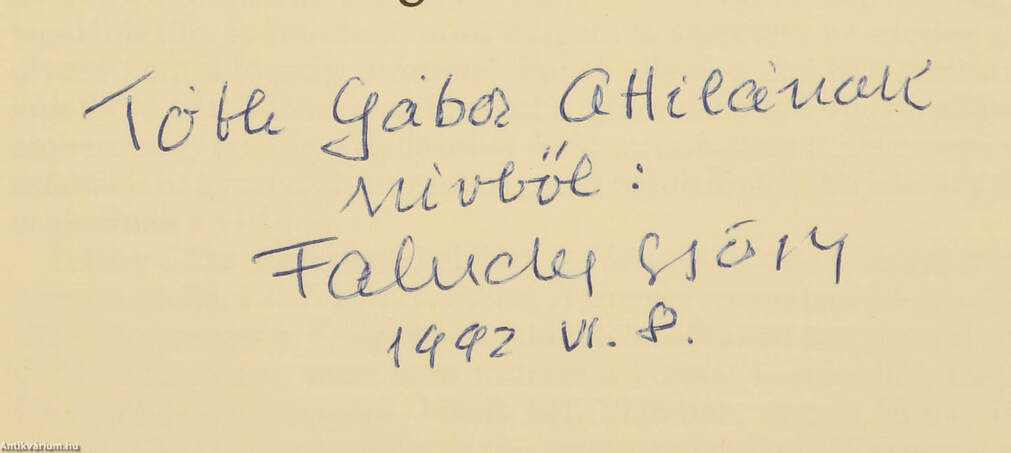 Tóth Gábor Attilának
szivből:
Faludy György
1992 VI. 8.
Antikvárium.hu